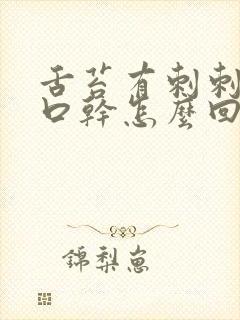 舌苔有刺刺
口幹怎麼回
錦梨崽